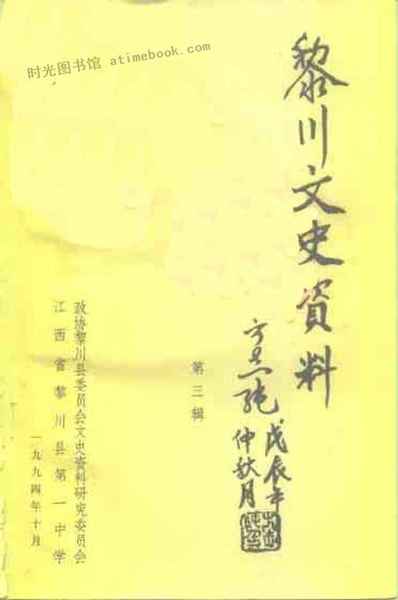 时光图书馆 atimebook.com
黎川文史資料
第三辑
戊辰年
仲秋月
政协黎川县委员会文史资料研究委员会
江西省黎川县第一中学
一九九四年十月